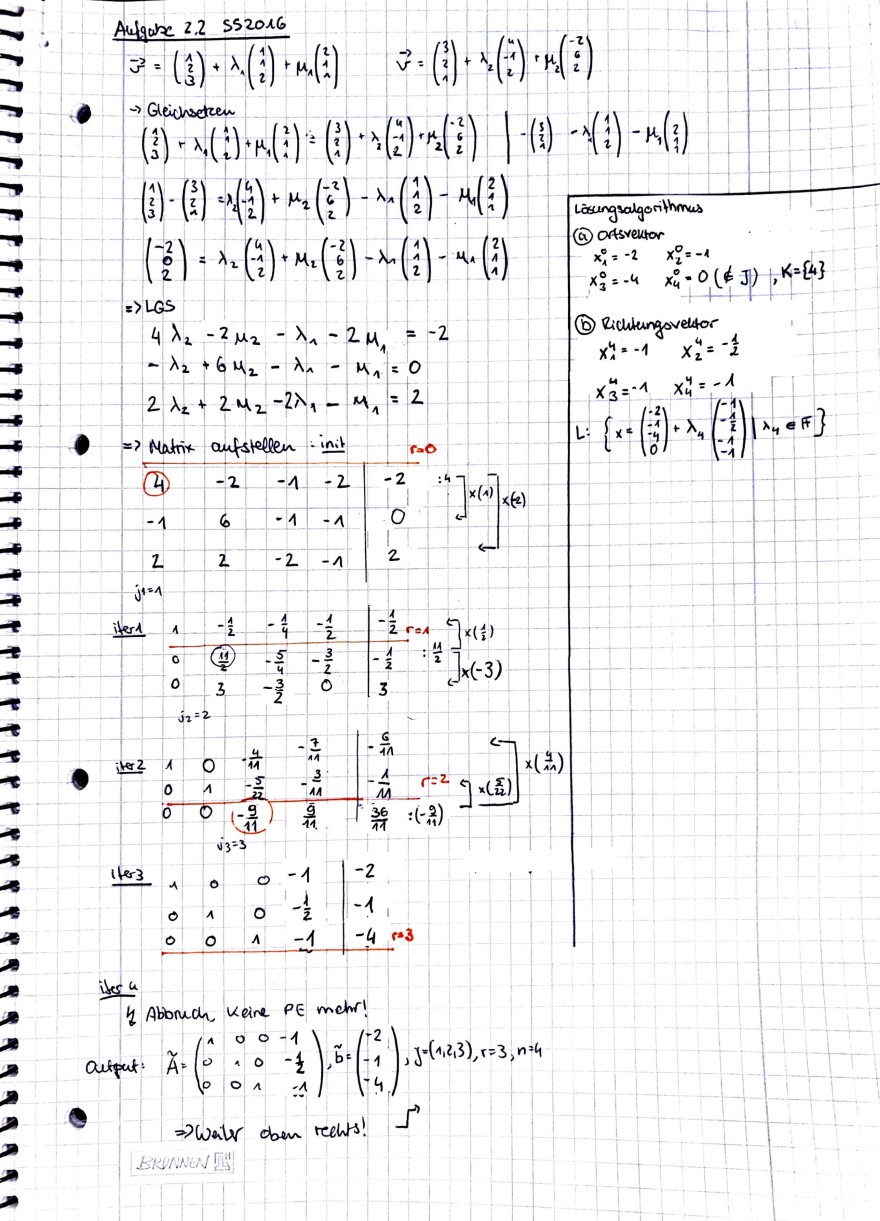 Aufgabe 2.2 SS2016
v⃗ = (1 2 3) + λ₁ (1 1 2) + μ₁ (2 1 1)   v⃗ = (3 2 1) + λ₂ (4 -1 2) + μ₂ (-2 6 2)
→ Gleichsetzen
(1 2 3) + λ₁ (1 1 2) + μ₁ (2 1 1) = (3 2 1) + λ₂ (4 -1 2) + μ₂ (-2 6 2) | - (3 2 1) - λ₁ (1 1 2) - μ₁ (2 1 1)
(1 2 3) - (3 2 1) = λ₂ (4 -1 2) + μ₂ (-2 6 2) - λ₁ (1 1 2) - μ₁ (2 1 1)
(-2 0 2) = λ₂ (4 -1 2) + μ₂ (-2 6 2) - λ₁ (1 1 2) - μ₁ (2 1 1)
=> LGS
4 λ₂ - 2 μ₂ - λ₁ - 2 μ₁ = -2
- λ₂ + 6 μ₂ - λ₁ - μ₁ = 0
2 λ₂ + 2 μ₂ - 2 λ₁ - μ₁ = 2
=> Matrix aufstellen : init r=0
4 -2 -1 -2 | -2 :4 x(1) x(-2)
-1 6 -1 -1 | 0
2 2 -2 -1 | 2
j1=1
iter1 1 -1/2 -1/4 -1/2 | -1/2 r=1 x(1/2)
0 11/2 -5/4 -3/2 | -1/2 : 11/2 x(-3)
0 3 -3/2 0 | 3
j2=2
iter2 1 0 -4/11 -7/11 | -6/11 x(4/11)
0 1 -5/22 -3/11 | -1/11 r=2 x(5/22)
0 0 -9/11 9/11 | 36/11 :(-9/11)
j3=3
iter3 1 0 0 -1 | -2
0 1 0 -1/2 | -1
0 0 1 -1 | -4 r=3
iter 4
↯ Abbruch keine PE mehr!
Output: Ã = (1 0 0 -1 0 1 0 -1/2 0 0 1 -1), b̃ = (-2 -1 -4), J=(1,2,3), r=3, n=4
=> Weiter oben rechts!
BRUNNEN
Lösungsalgorithmus
ⓐ Ortsvektor
x₁⁰ = -2 x₂⁰ = -1
x₃⁰ = -4 x₄⁰ = 0 (∉ J), K={4}
ⓑ Richtungsvektor
x₁⁴ = -1 x₂⁴ = -1/2
x₃⁴ = -1 x₄⁴ = -1
L: { x = (-2 -1 -4 0) + λ₄ (-1 -1/2 -1 -1) | λ₄ ∈ F }